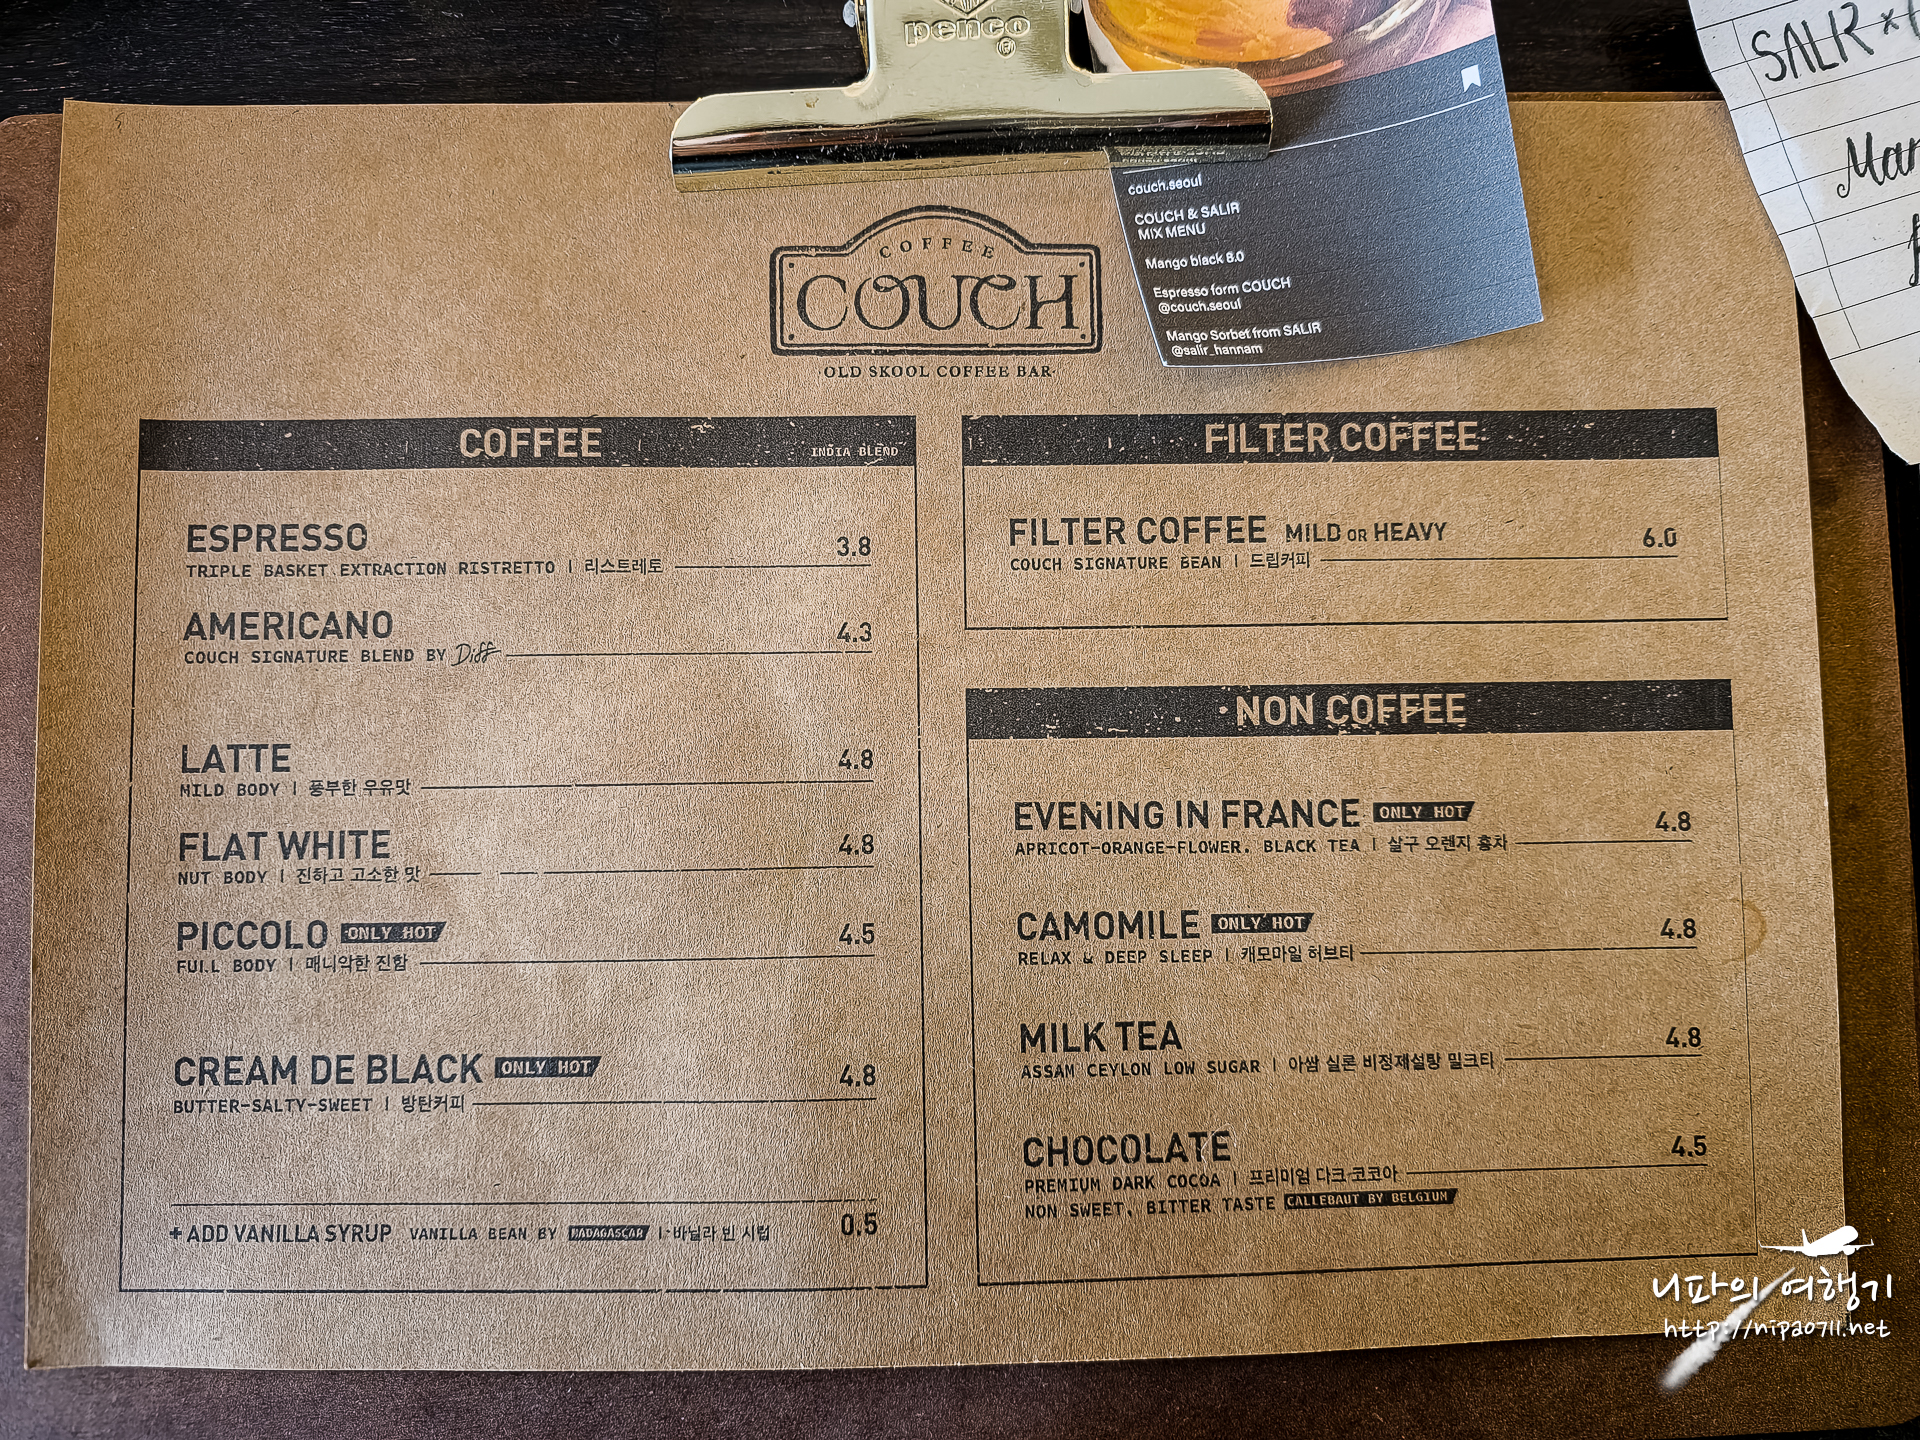 penco
®
couch.seoul
COUCH & SALIR
MIX MENU
Mango black 8.0
Espresso form COUCH
@couch.seoul
Mango Sorbet from SALIR
@salir_hannam
SALIR x
COFFEE
COUCH
OLD SKOOL COFFEE BAR
COFFEE
INDIA BLEND
ESPRESSO 3.8
TRIPLE BASKET EXTRACTION RISTRETTO | 리스트레토
AMERICANO 4.3
COUCH SIGNATURE BLEND BY Diff
LATTE 4.8
MILD BODY | 풍부한 우유맛
FLAT WHITE 4.8
NUT BODY | 진하고 고소한 맛
PICCOLO ONLY HOT 4.5
FULL BODY | 매니악한 진함
CREAM DE BLACK ONLY HOT 4.8
BUTTER-SALTY-SWEET | 방탄커피
+ ADD VANILLA SYRUP VANILLA BEAN BY MADAGASCAR | 바닐라 빈 시럽 0.5
FILTER COFFEE
FILTER COFFEE MILD OR HEAVY 6.0
COUCH SIGNATURE BEAN | 드립커피
NON COFFEE
EVENING IN FRANCE ONLY HOT 4.8
APRICOT-ORANGE-FLOWER. BLACK TEA | 살구 오렌지 홍차
CAMOMILE ONLY HOT 4.8
RELAX & DEEP SLEEP | 캐모마일 허브티
MILK TEA 4.8
ASSAM CEYLON LOW SUGAR | 아쌈 실론 비정제설탕 밀크티
CHOCOLATE 4.5
PREMIUM DARK COCOA | 프리미엄 다크 코코아
NON SWEET, BITTER TASTE CALLEBAUT BY BELGIUM
니파의 여행기
http://nipa0711.net